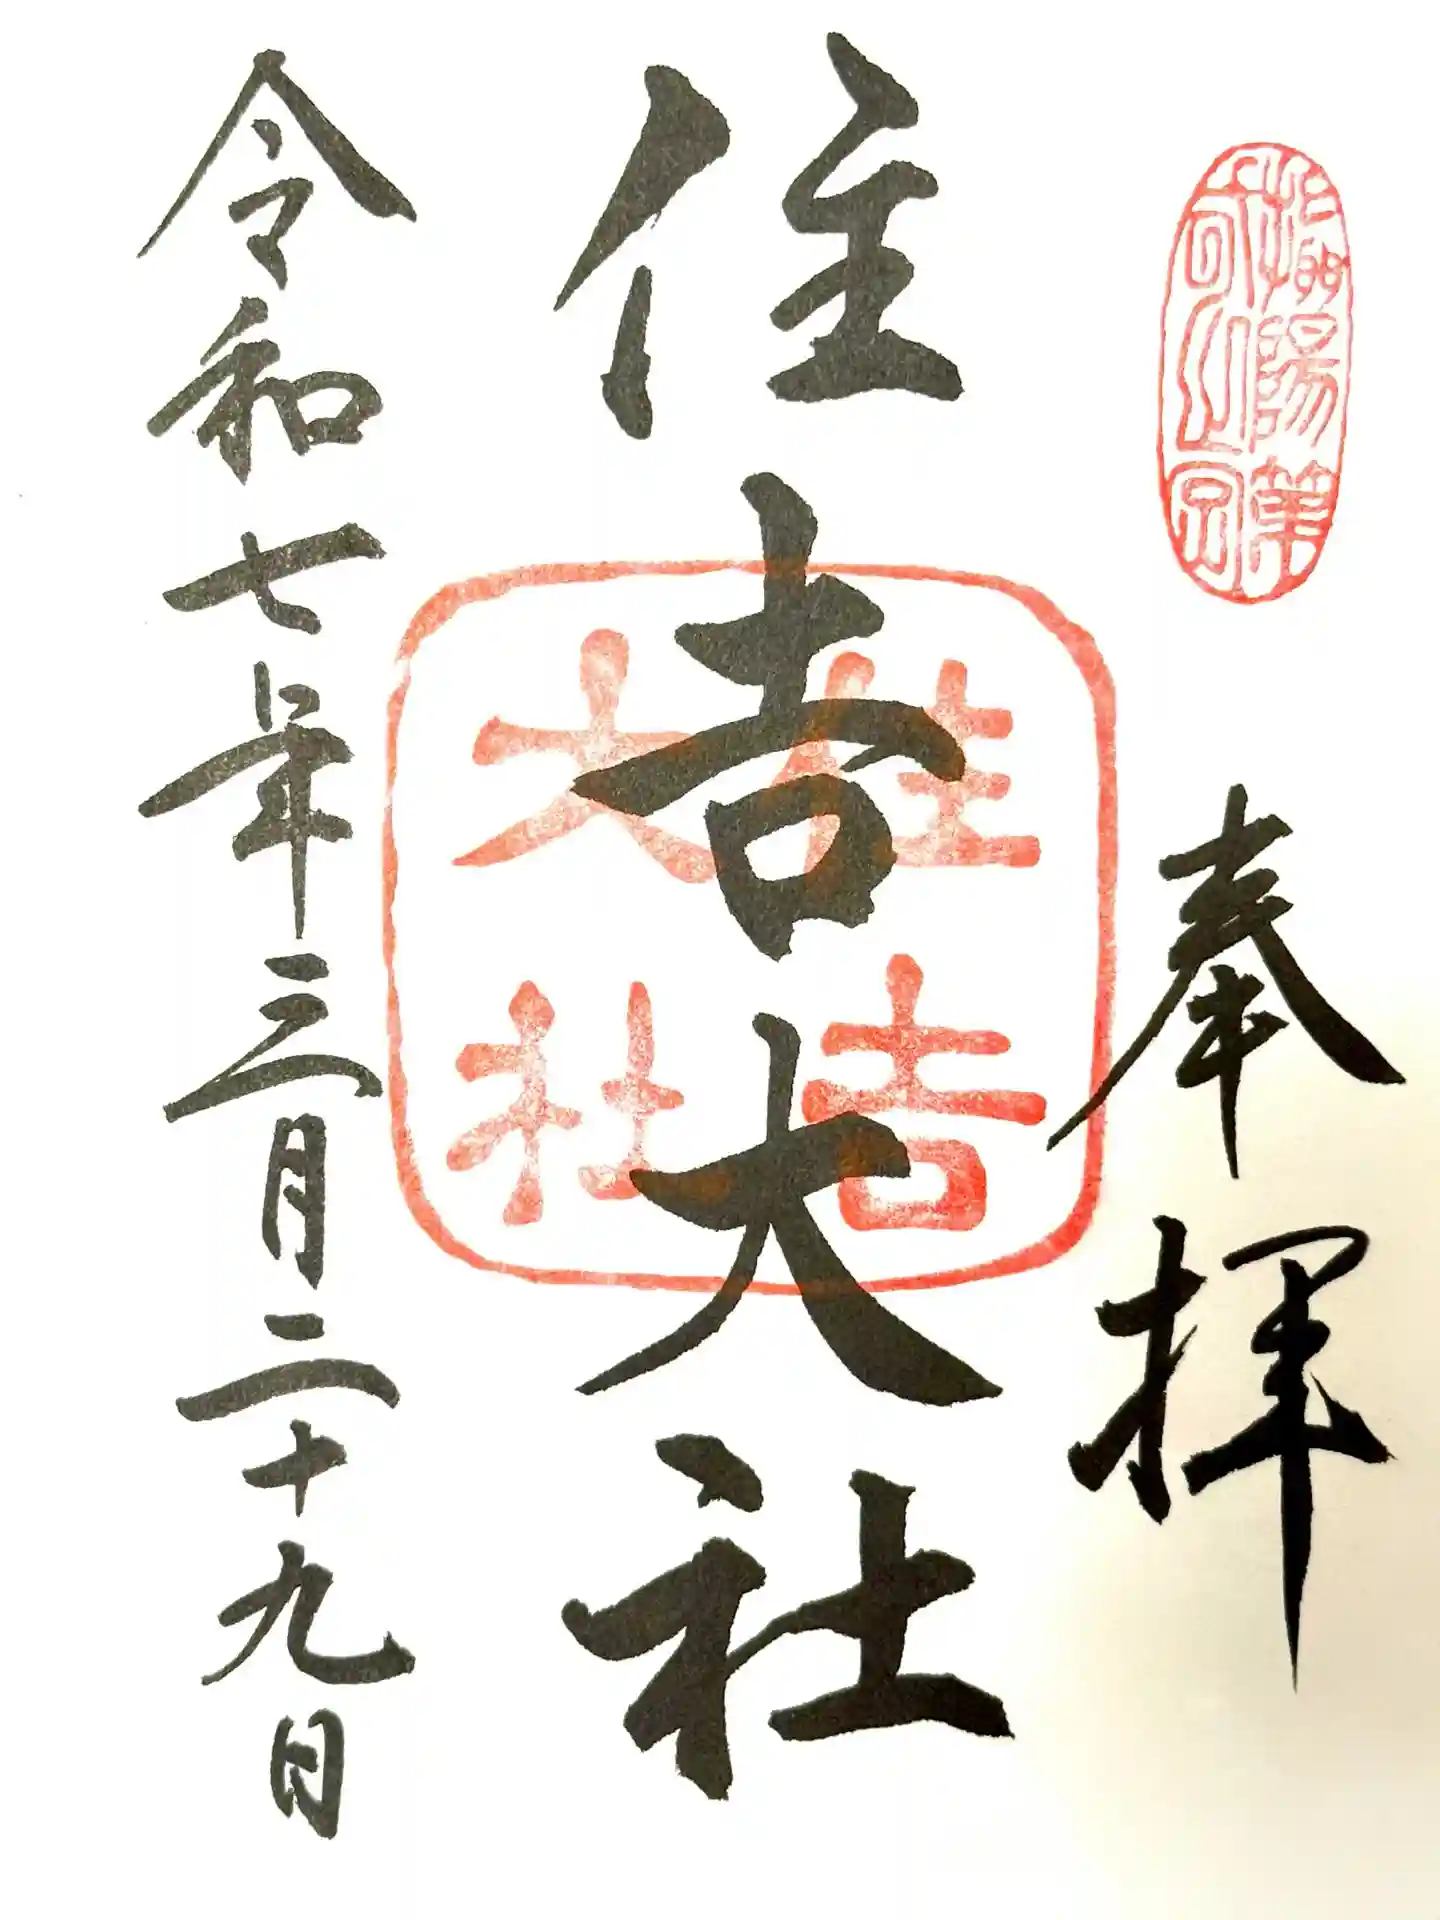 奉拝
住吉大社
住吉大社
令和七年三月二十九日